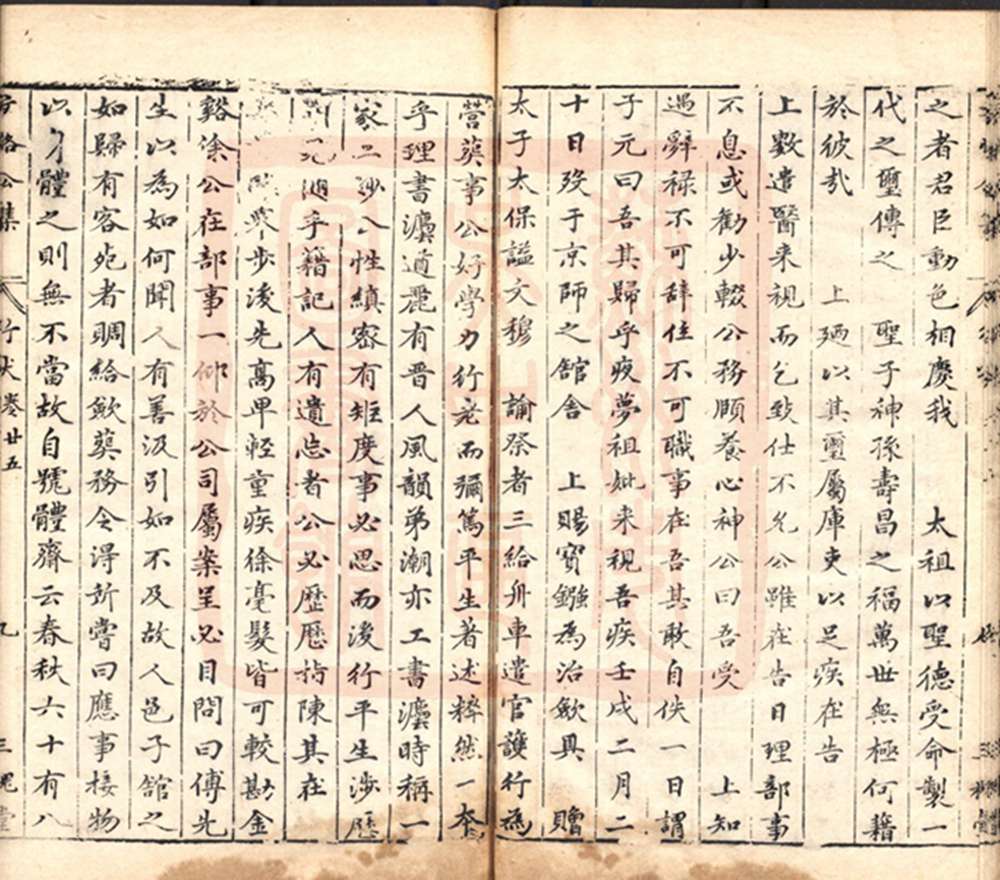 之者君臣動色相慶我　　太祖以聖德受命製一
代之璽傳之　聖子神孫壽昌之福萬世無極何籍
於彼哉　　上廼以其璽屬庫吏以足疾在告
上數遣醫来視而乞致仕不允公雖在告日理部事
不息或勸少輟公務頤養心神公曰吾受　　上知
遇辭祿不可辭住不可職事在吾其敢自佚一日謂
子元曰吾其歸乎夜夢祖妣来視吾疾壬戌二月二
十日歿于京師之舘舎　　上賜寳鏹為治歛具　贈
太子太保謚文穆　諭祭者三給舟車遣官護行為
營葬事公好學力行老而彌篤平生著述粹然一夲
乎理書灋遒麗有晋人風韻弟潮亦工書灋時稱一
家二 性縝密有矩度事必思而後行平生涉歷
乎籍記人有遺忘者公必歷歷指陳其在
步後先高卑輕重疾徐毫髮皆可較勘金
谿涂公在部事一仰於公司屬案呈必目問曰傅先
生以為如何聞人有善汲引如不及故人邑子舘之
如歸有客死者賙給歛葬務令得所嘗曰應事接物
以 體之則無不當故自號體齋云春秋六十有八
公集 行狀卷廿五 九